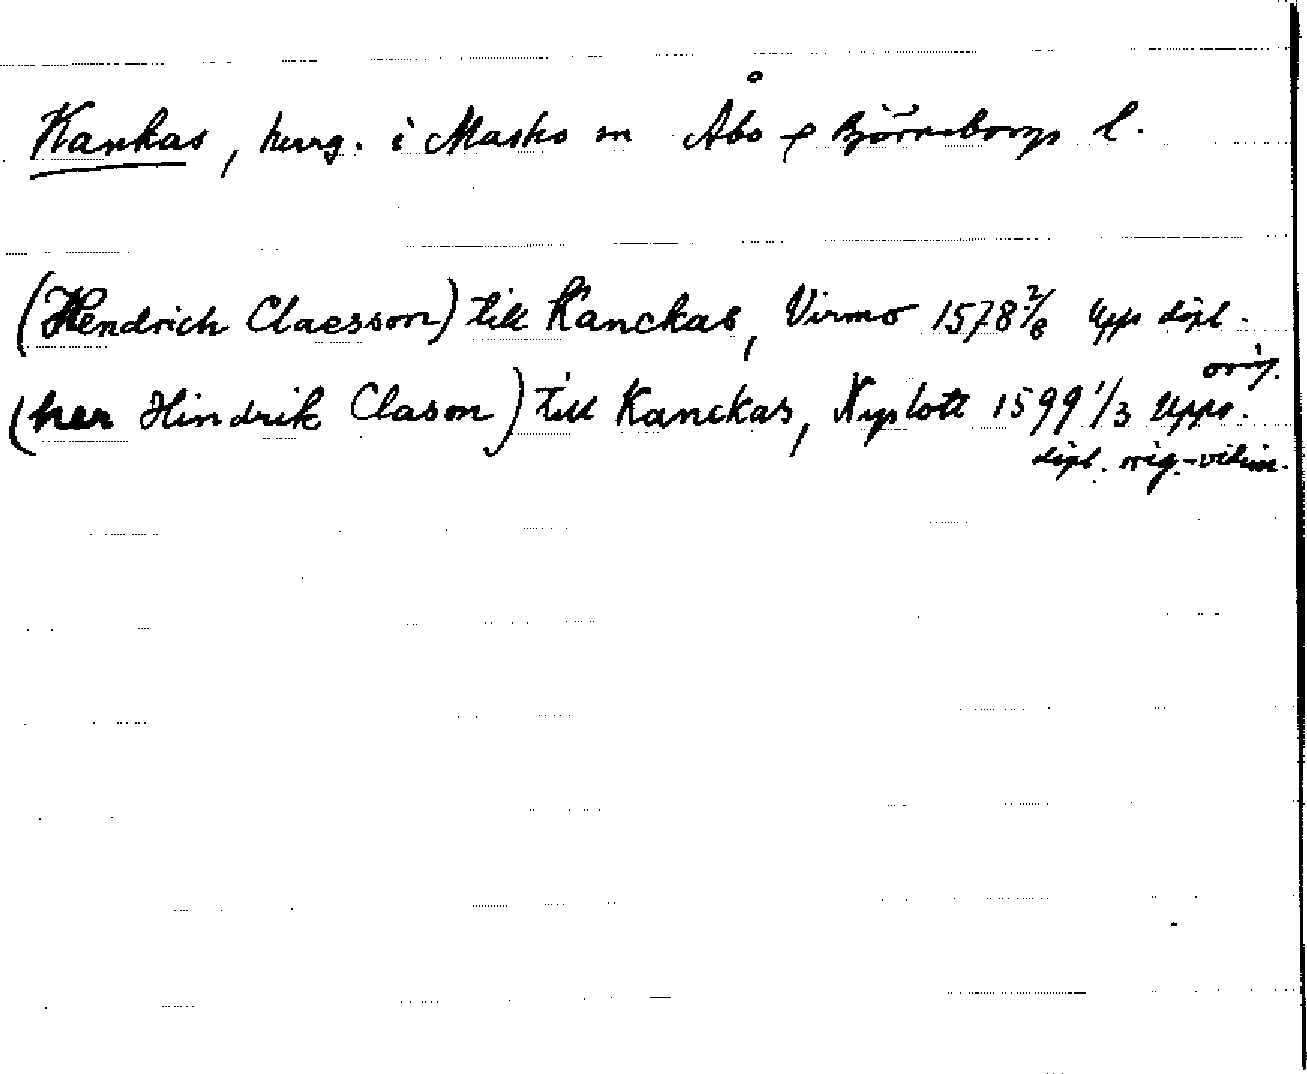 Kankas, herrg. i Masko sn Åbo o Björneborgs l.
(Hendrich Claesson) till Kanckas, Virmo 1578 2/8 Upps dipl.
orig.
(her Hindrik Clason) till Kanckas, Nyslott 1599 1/3 Upps.
dipl. orig.-vidim.